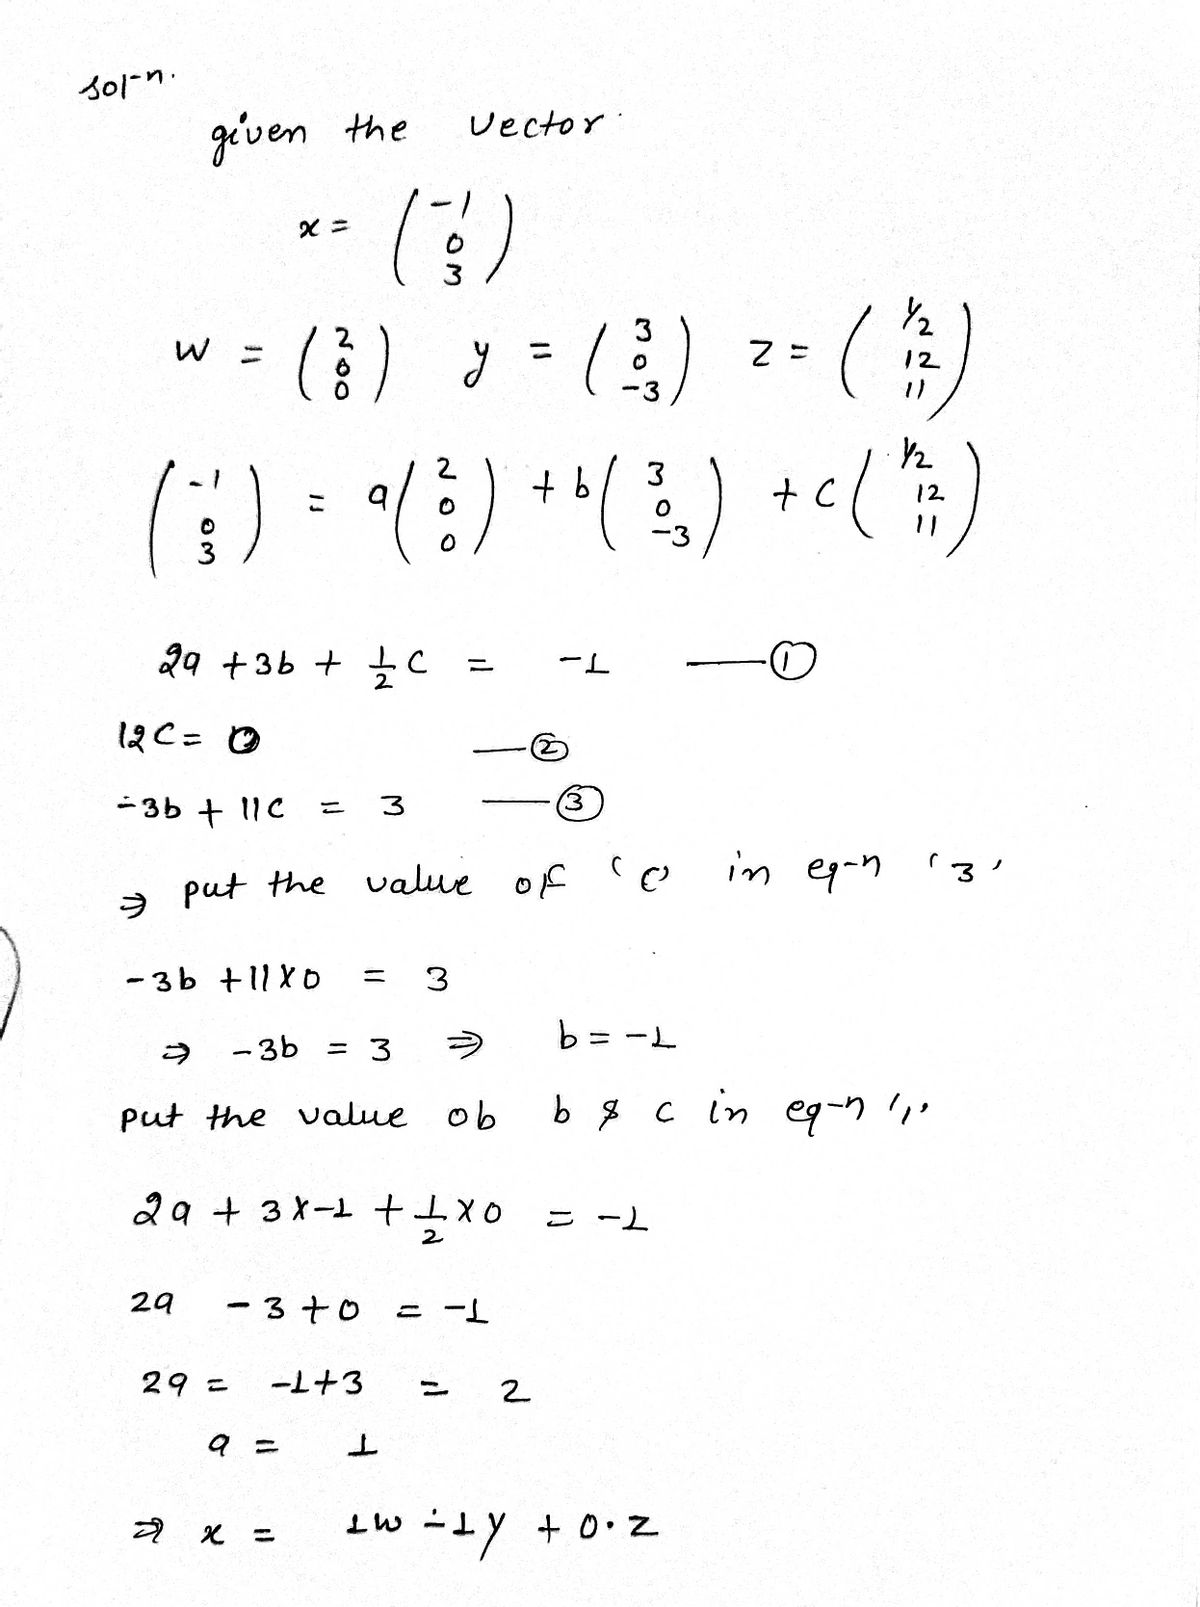 sol-n.
given the vector.
x = (-1 0 3)
w = (2 0 0) y = (3 0 -3) z = (1/2 12 11)
(-1 0 3) = a(2 0 0) + b(3 0 -3) + c(1/2 12 11)
2a + 3b + 1/2 c = -1 —①
12c = 0 —②
-3b + 11c = 3 —③
⇒ put the value of 'c' in eq-n '3'
-3b + 11×0 = 3
⇒ -3b = 3 ⇒ b = -1
put the value ob b & c in eq-n '1'
2a + 3×-1 + 1/2 ×0 = -1
2a - 3 + 0 = -1
2a = -1+3 = 2
a = 1
⇒ x = 1w - 1y + 0·z